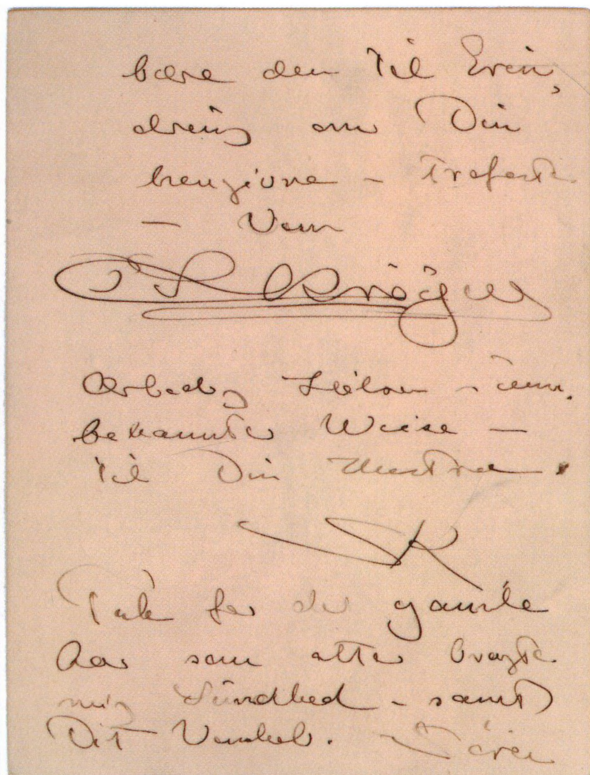 bære den til Erin,
dring om Din
hengivne - trofaste
- Ven
P S Krøyer
Ærbødig Hilsen - unbekannter Weise -
til Din Hustru.
SK
Tak for det gamle
Aar som atter bragte
mig Sundhed - samt
Dit Venskab. Søren